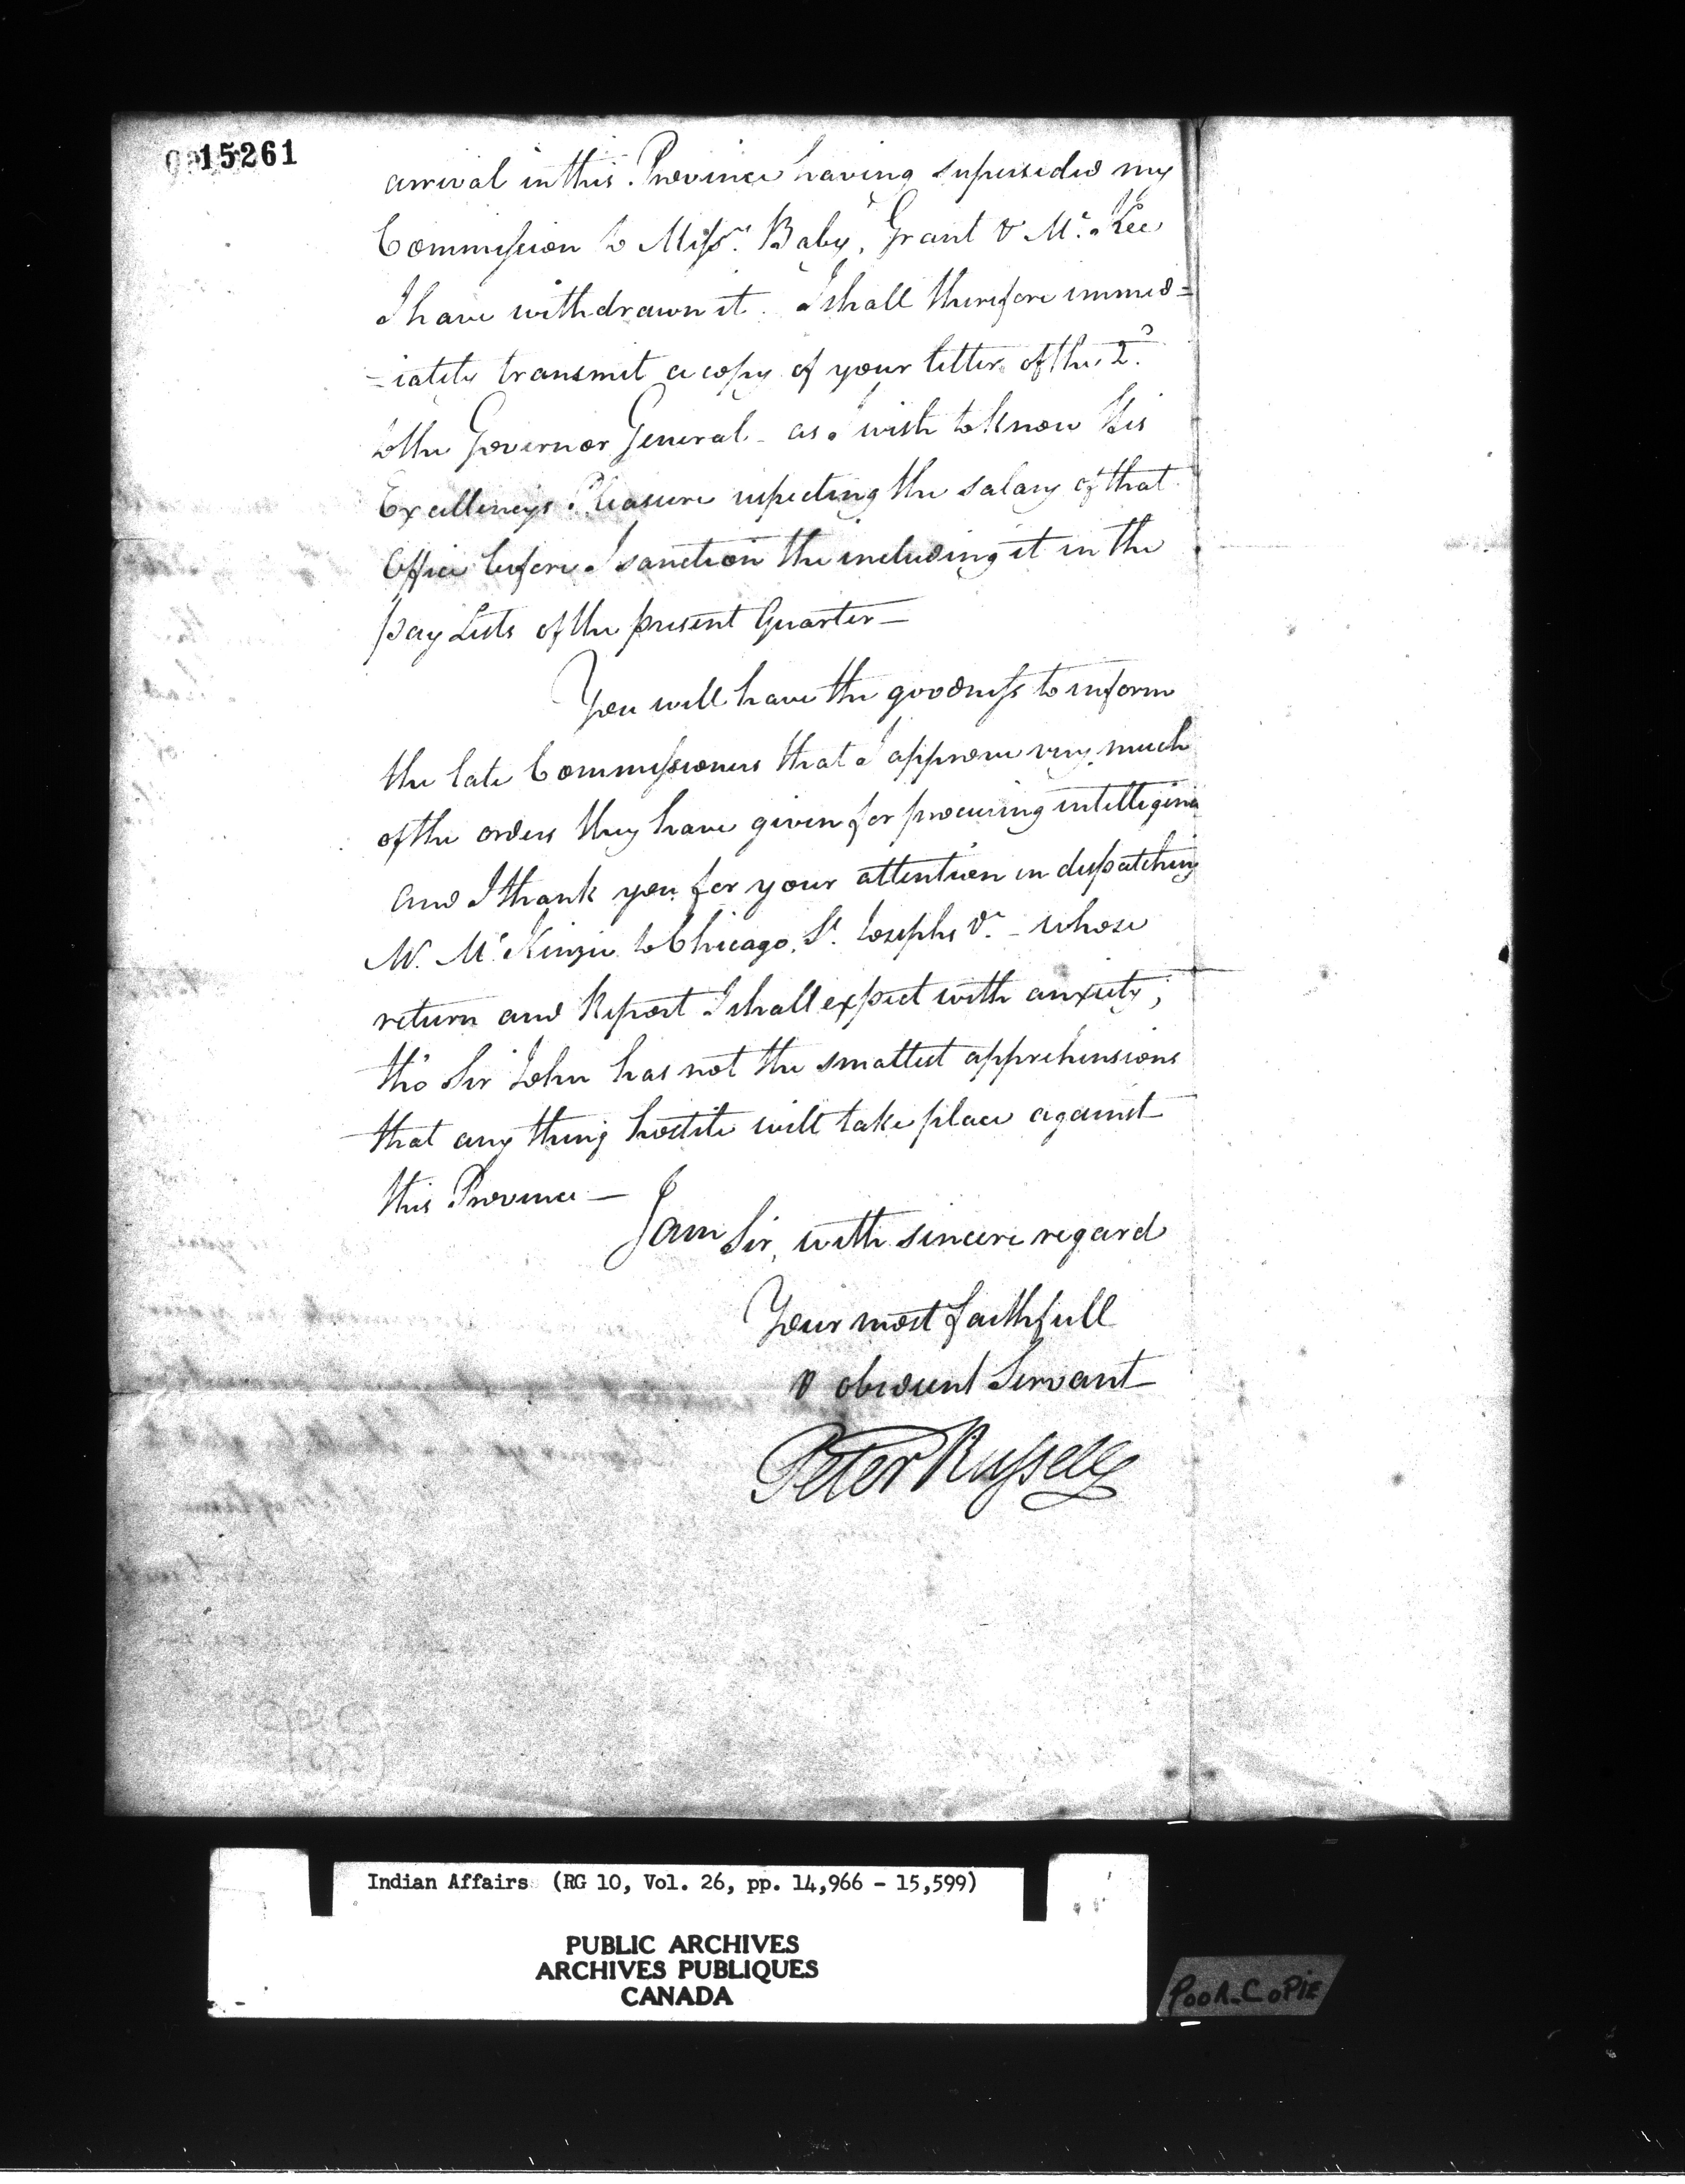 15261
arrival in this Province having superseded my
Commission to Messrs. Baby, Grant & McKee
I have withdrawn it. I shall therefore immed=
=iately transmit a copy of your letter of the 2d.
to the Governor General - as I wish to know His
Excellencys Pleasure respecting the salary of that
Office before I sanction the including it in the
pay Lists of the present Quarter —
You will have the goodness to inform
the late Commissioners that I approve very much
of the orders they have given for procuring intelligence
and I thank you for your attention in dispatching
to Chicago, St. Josephs &c. - whose
return and Report I shall expect with anxiety;
tho' Sir John has not the smallest apprehensions
that any thing hostile will take place against
this Province —
I am Sir, with sincere regard
Your most faithfull
& obedient Servant
Peter Russell
Indian Affairs (RG 10, Vol. 26, pp. 14,966 - 15,599)
PUBLIC ARCHIVES
ARCHIVES PUBLIQUES
CANADA
POOR-COPIE